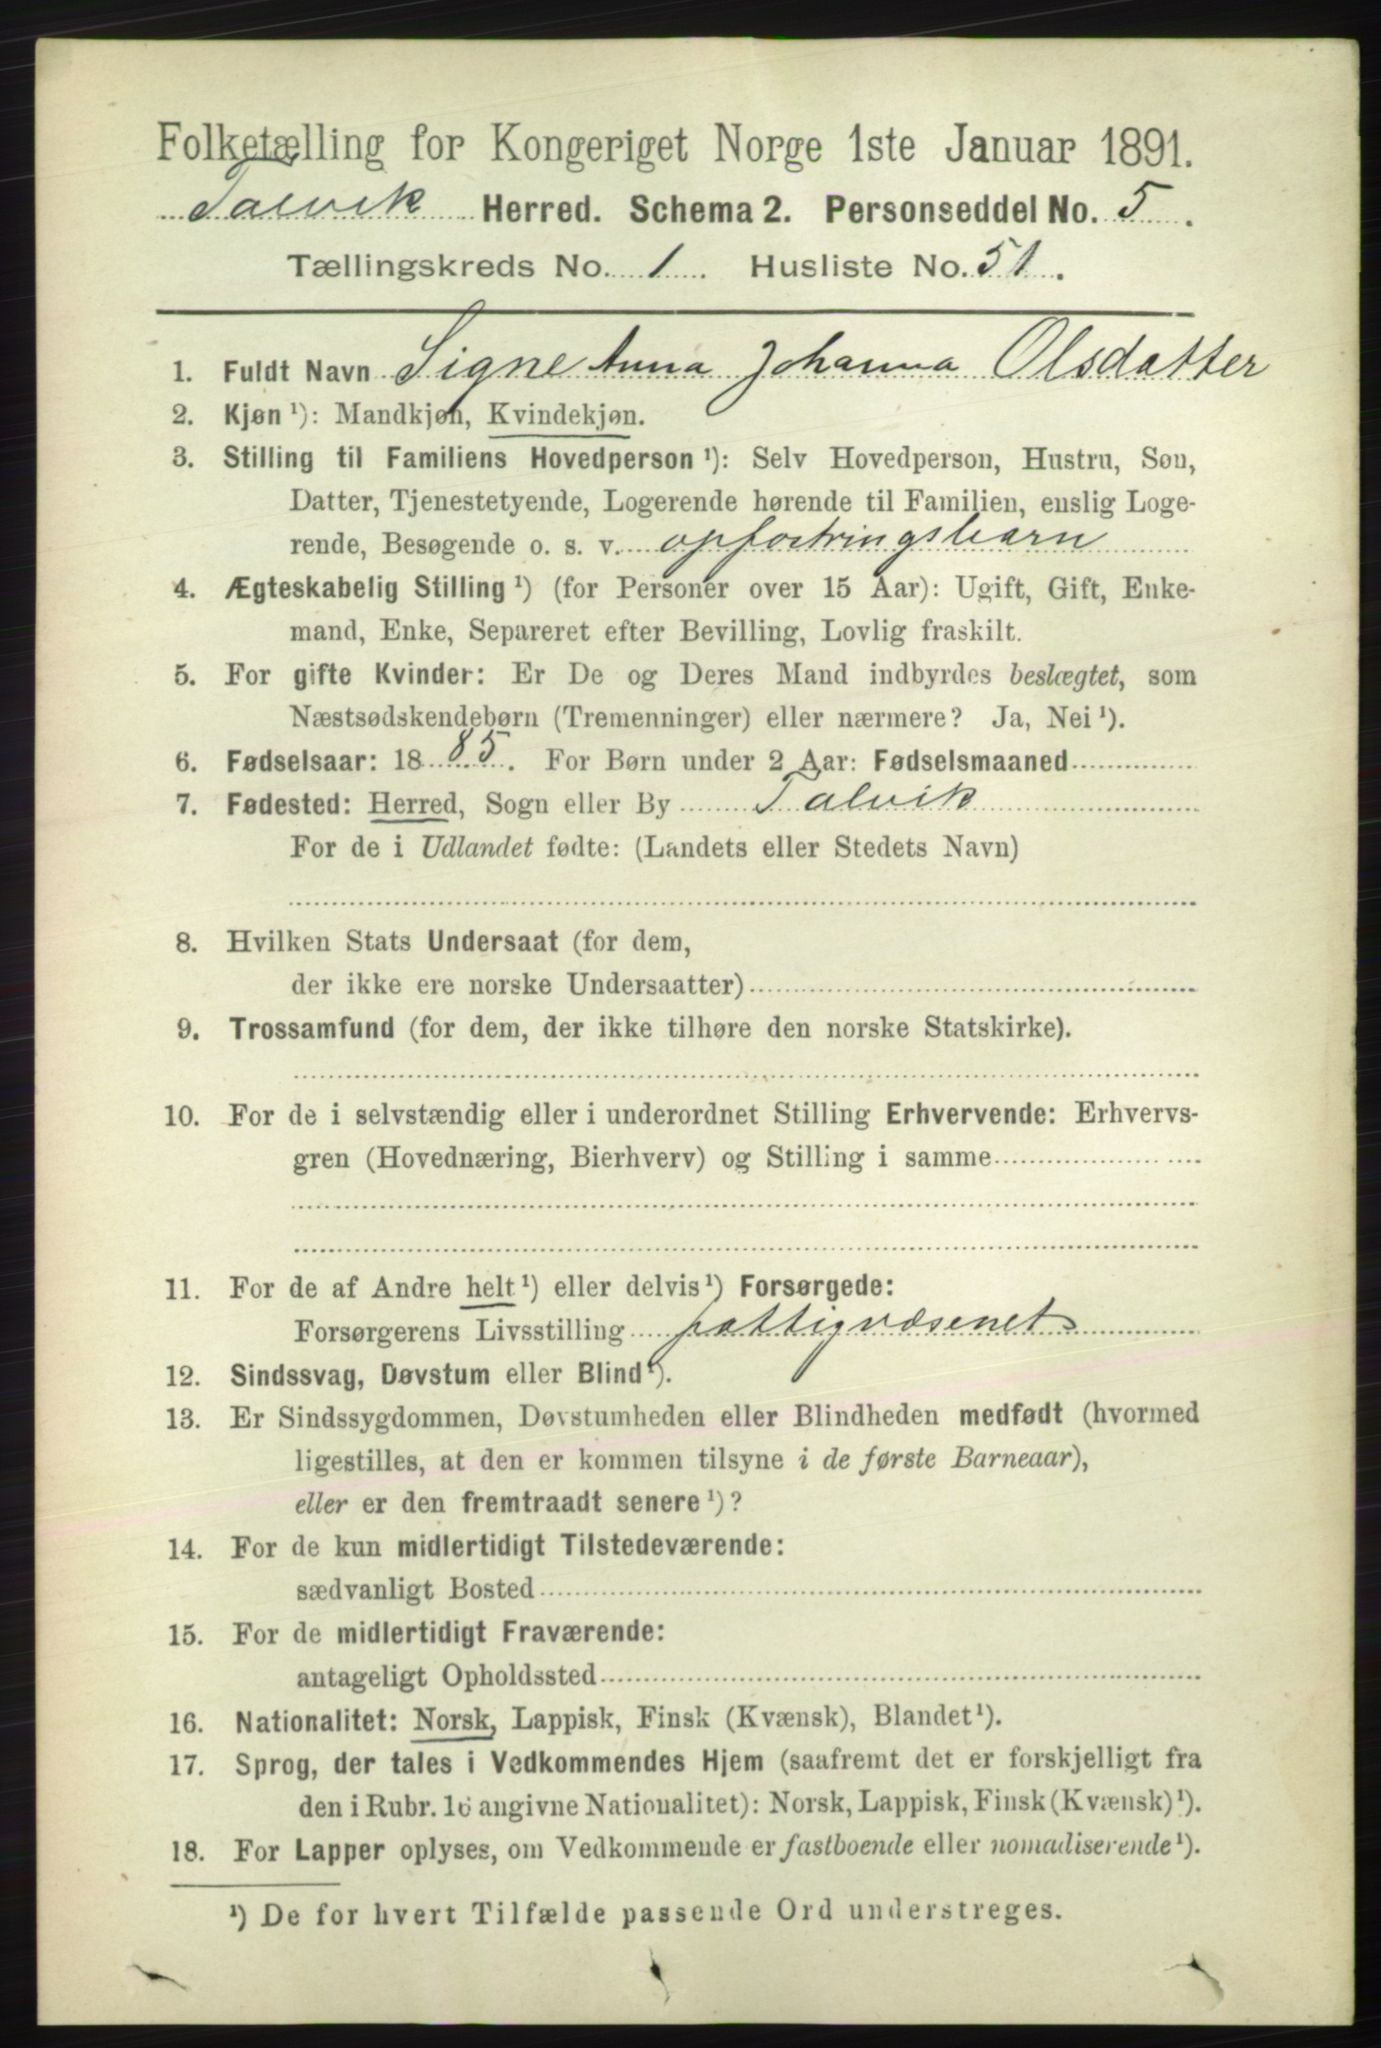 Folketælling for Kongeriget Norge 1ste Januar 1891.
Talvik Herred. Schema 2. Personseddel No. 5.
Tællingskreds No. 1. Husliste No. 51.
1. Fuldt Navn Signe Anna Johanna Olsdatter
2. Kjøn ¹): Mandkjøn, Kvindekjøn.
3. Stilling til Familiens Hovedperson ¹): Selv Hovedperson, Hustru, Søn,
Datter, Tjenestetyende, Logerende hørende til Familien, enslig Loge-
rende, Besøgende o. s. v. opfostringsbarn
4. Ægteskabelig Stilling ¹) (for Personer over 15 Aar): Ugift, Gift, Enke-
mand, Enke, Separeret efter Bevilling, Lovlig fraskilt.
5. For gifte Kvinder: Er De og Deres Mand indbyrdes beslægtet, som
Næstsødskendebørn (Tremenninger) eller nærmere? Ja, Nei ¹).
6. Fødselsaar: 1885. For Børn under 2 Aar: Fødselsmaaned
7. Fødested: Herred, Sogn eller By Talvik
For de i Udlandet fødte: (Landets eller Stedets Navn)
8. Hvilken Stats Undersaat (for dem,
der ikke ere norske Undersaatter)
9. Trossamfund (for dem, der ikke tilhøre den norske Statskirke).
10. For de i selvstændig eller i underordnet Stilling Erhvervende: Erhvervs-
gren (Hovednæring, Bierhverv) og Stilling i samme
11. For de af Andre helt ¹) eller delvis ¹) Forsørgede:
Forsørgerens Livsstilling fattigvæsenet
12. Sindssvag, Døvstum eller Blind ¹).
13. Er Sindssygdommen, Døvstumheden eller Blindheden medfødt (hvormed
ligestilles, at den er kommen tilsyne i de første Barneaar),
eller er den fremtraadt senere ¹)?
14. For de kun midlertidigt Tilstedeværende:
sædvanligt Bosted
15. For de midlertidigt Fraværende:
antageligt Opholdssted
16. Nationalitet: Norsk, Lappisk, Finsk (Kvænsk), Blandet ¹).
17. Sprog, der tales i Vedkommendes Hjem (saafremt det er forskjelligt fra
den i Rubr. 16 angivne Nationalitet): Norsk, Lappisk, Finsk (Kvænsk) ¹).
18. For Lapper oplyses, om Vedkommende er fastboende eller nomadiserende ¹).
¹) De for hvert Tilfælde passende Ord understreges.